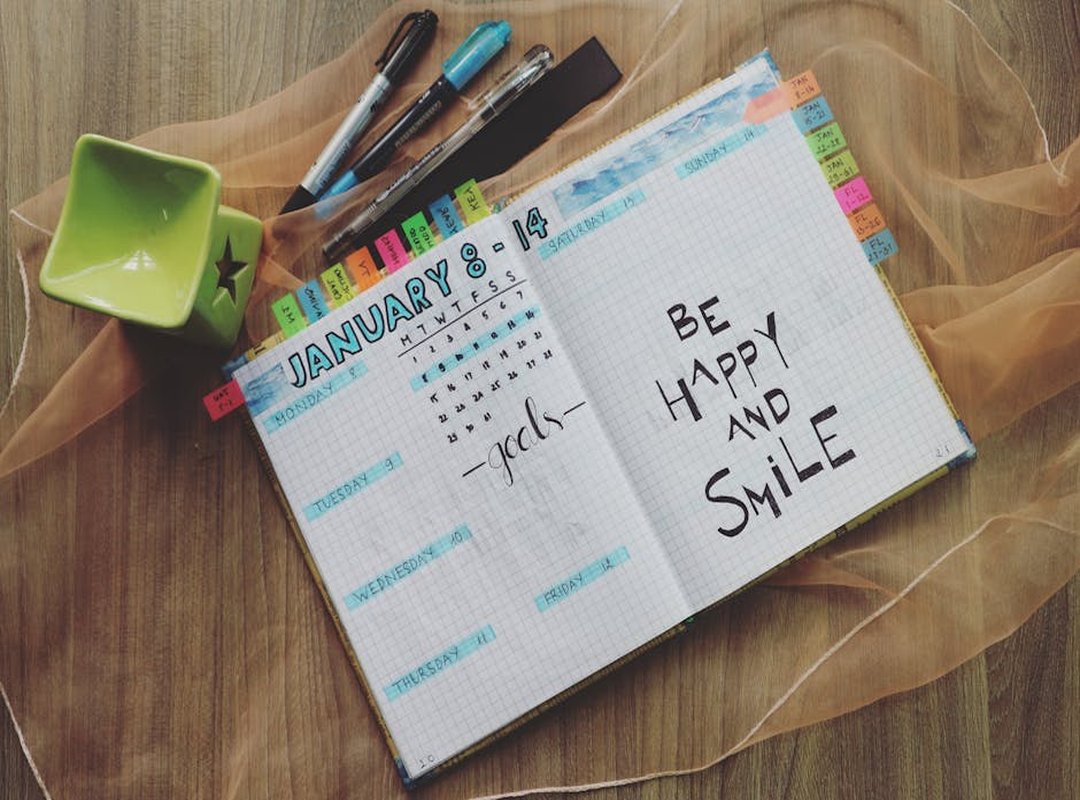 JANUARY 8 - 14
M T W T F S S
1 2 3 4 5 6 7
8 9 10 11 12 13 14
15 16 17 18 19 20 21
22 23 24 25 26 27 28
29 30 31
MONDAY 8
- goals -
TUESDAY 9
WEDNESDAY 10
THURSDAY 11
FRIDAY 12
20
SATURDAY 13
SUNDAY 14
BE
HAPPY
AND
SMiLE
21
KEY
JAN
8-14
JAN
15-21
JAN
22-28
JAN
29-31